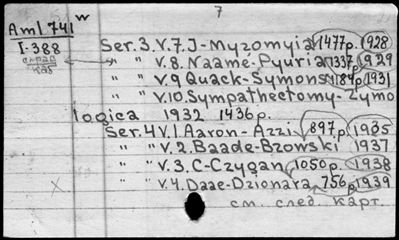 7
Am1741 w
I-388
справ
каб
Ser. 3. V.7. J-Myzomyia 1477p. 1928
" " V.8. Naamé-Pyuria 1337p. 1929
" " V.9 Quack-Symons 1184p. 1931
" " V.10. Sympathectomy-Zymo
logica 1932 1436p.
Ser. 4 V.1. Aaron-Azzi 897p. 1935
" " V.2. Baade-Bzowski 1937
" " V.3. C-Czygan 1050p. 1938
" " V.4. Daae-Dzionara 756p. 1939
см. след. карт.